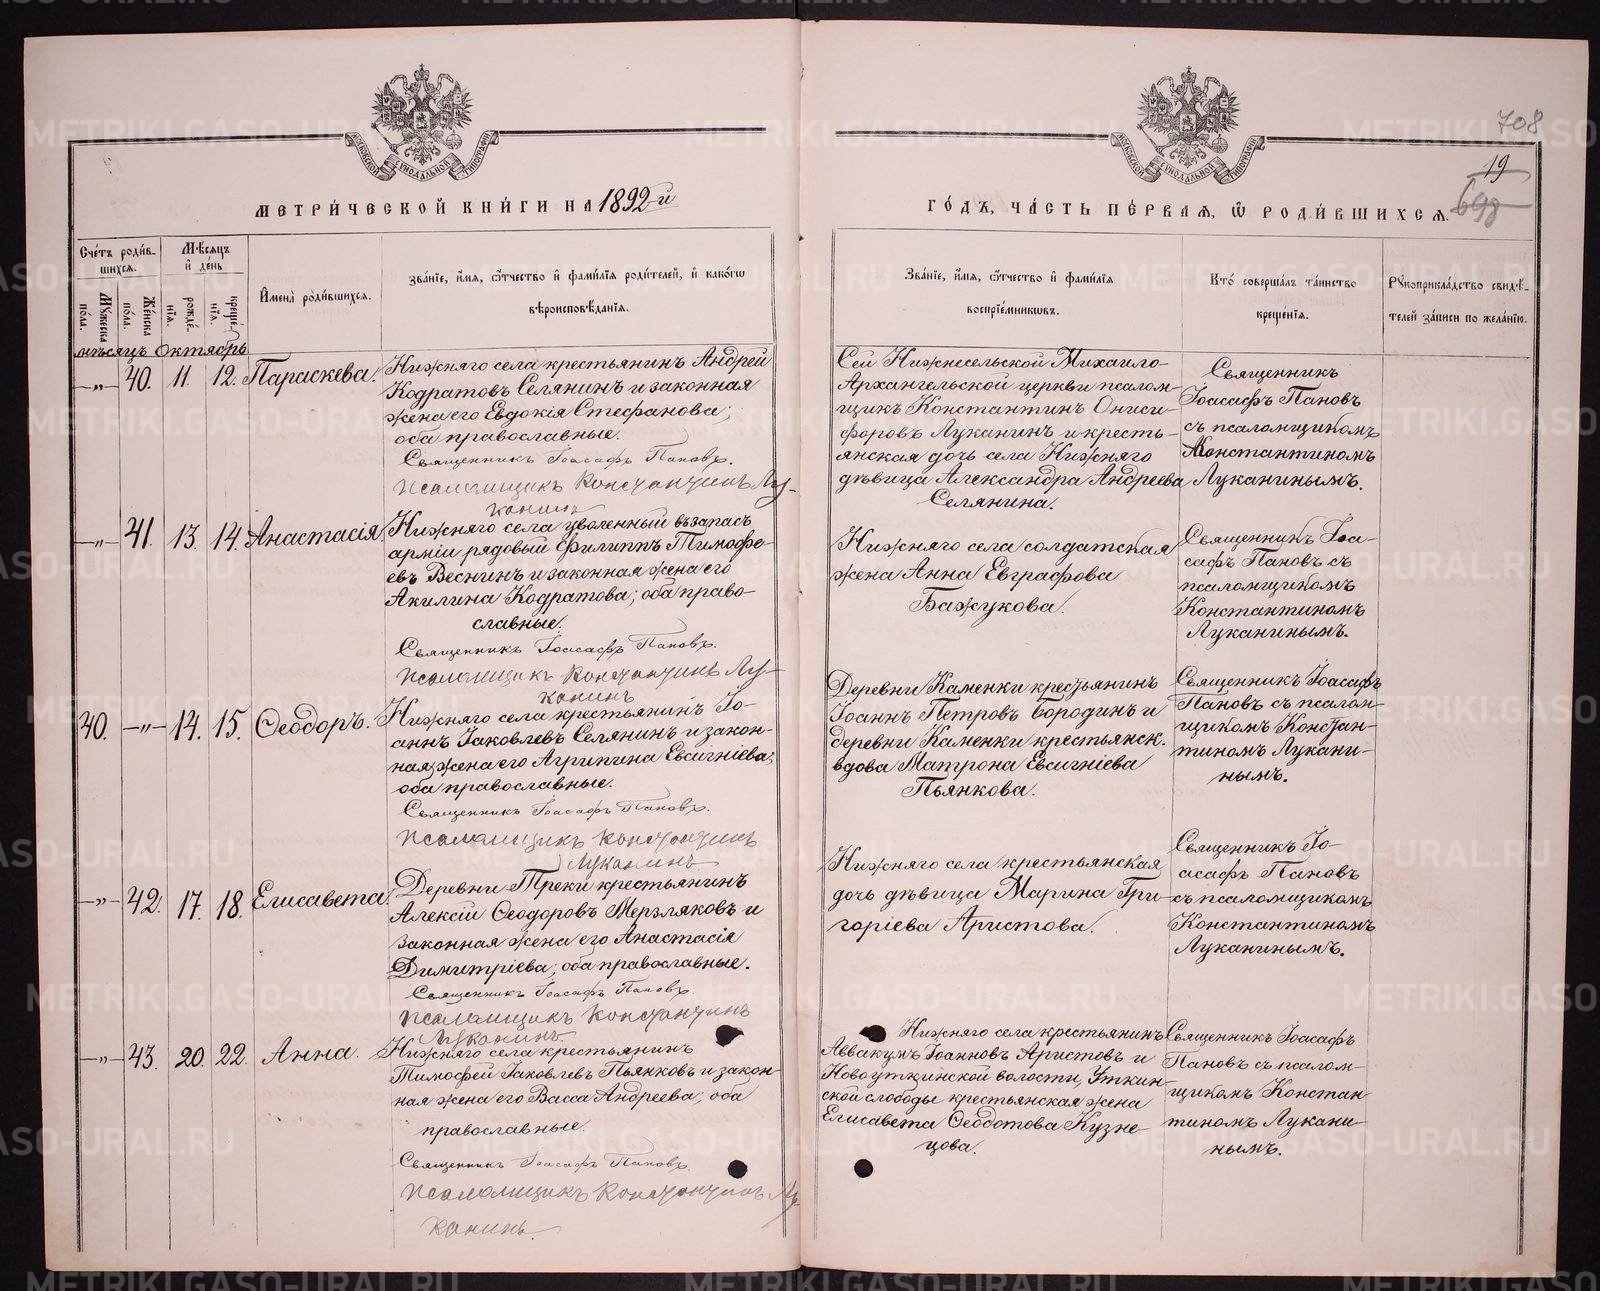 708
19
698
МОСКОВСКОЙ СѴНОДАЛЬНОЙ ТИПОГРАФІИ
МОСКОВСКОЙ СѴНОДАЛЬНОЙ ТИПОГРАФІИ
МЕТРИ́ЧЕСКОЙ КНИ́ГИ НА 1892-й
ГО́ДЪ, ЧА́СТЬ ПЕ́РВАЯ, Ѡ҆ РОДИ́ВШИХСЯ.
Сче́тъ роди́в-
шихся.
Мѣ́сяцъ
и҆ де́нь
Мꙋ́жеска
по́ла.
Же́нска
по́ла.
рожде́-
нїя.
креще́-
нїя.
И҆мена̀ роди́вшихся.
Зва́нїе, и҆́мя, ѻ҆́тчество и҆ фами́лїя роди́телей, и҆ како́гѡ
вѣроисповѣ́данїя.
Зва́нїе, и҆́мя, ѻ҆́тчество и҆ фами́лїя
воспрїе́мниковъ.
Кто̀ соверша́лъ та́инство
креще́нїя.
Рꙋкоприкла́дство свидѣ́-
телей за́писи по жела́нїю.
мѣсяцъ Октябрь
—„— 40. 11. 12. Параскева.
Нижняго села крестьянинъ Андрей
Кодратовъ Селянинъ и законная
жена его Евдокія Стефанова;
оба православные.
Священникъ Іоасафъ Пановъ.
Псаломщикъ Константинъ Лу-
канинъ
Сей Нижнесельской Михаило-
Архангельской церкви псалом-
щикъ Константинъ Ониси-
форовъ Луканинъ и кресть-
янская дочь села Нижняго
дѣвица Александра Андреева
Селянина.
Священникъ
Іоасафъ Пановъ
съ псаломщикомъ
Константиномъ
Луканинымъ.
—„— 41. 13. 14. Анастасія
Нижняго села уволенный въ запасъ
арміи рядовый Филиппъ Тимофе-
евъ Веснинъ и законная жена его
Акилина Кодратова; оба право-
славные.
Священникъ Іоасафъ Пановъ.
Псаломщикъ Константинъ Лу-
канинъ
Нижняго села солдатская
жена Анна Евграфова
Бажукова.
Священникъ Іоа-
сафъ Пановъ съ
псаломщикомъ
Константиномъ
Луканинымъ.
40. —„— 14. 15. Ѳеодоръ.
Нижняго села крестьянинъ Іо-
аннъ Іаковлевъ Селянинъ и закон-
ная жена его Агрипина Евсигніева;
оба православные.
Священникъ Іоасафъ Пановъ.
Псаломщикъ Константинъ
Луканинъ
Деревни Каменки крестьянинъ
Іоаннъ Петровъ Бородинъ и
деревни Каменки крестьянск.
вдова Матрона Евсигніева
Пьянкова.
Священникъ Іоасафъ
Пановъ съ псалом-
щикомъ Констан-
тиномъ Лукани-
нымъ.
—„— 42. 17. 18. Елисавета.
Деревни Треки крестьянинъ
Алексій Ѳеодоровъ Мерзляковъ и
законная жена его Анастасія
Димитріева; оба православные.
Священникъ Іоасафъ Пановъ.
Псаломщикъ Константинъ
Луканинъ
Нижняго села крестьянская
дочь дѣвица Марина Гри-
горіева Аристова.
Священникъ Іо-
асафъ Пановъ
съ псаломщикомъ
Константиномъ
Луканинымъ.
—„— 43. 20. 22. Анна.
Нижняго села крестьянинъ
Тимофей Іаковлевъ Пьянковъ и закон-
ная жена его Васса Андреева; оба
православные.
Священникъ Іоасафъ Пановъ.
Псаломщикъ Константинъ Лу-
канинъ.
Нижняго села крестьянинъ
Аввакумъ Іоанновъ Аристовъ и
Новоуткинской волости, Уткин-
ской слободы крестьянская жена
Елисавета Ѳеодотова Кузне-
цова.
Священникъ Іоасафъ
Пановъ съ псалом-
щикомъ Констан-
тиномъ Лукани-
нымъ.
METRIKI.GASO-URAL.RU